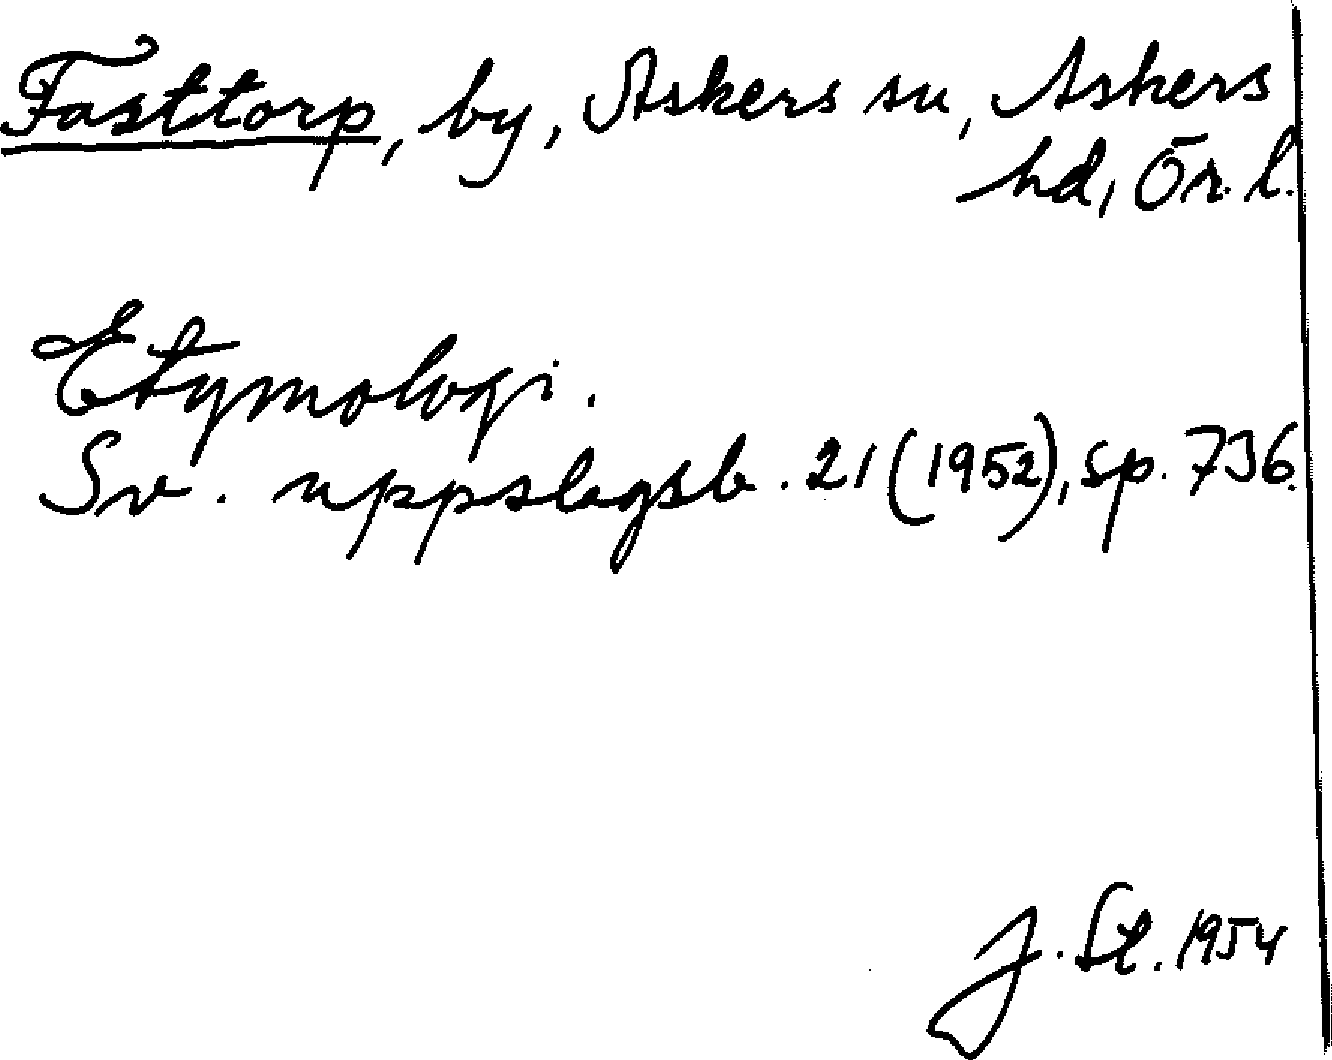 Fasttorp, by, Askers sn, Askers
hd, Ör. l.
Etymologi.
Sv. uppslagsb. 21 (1952), sp. 736.
J. St. 1954